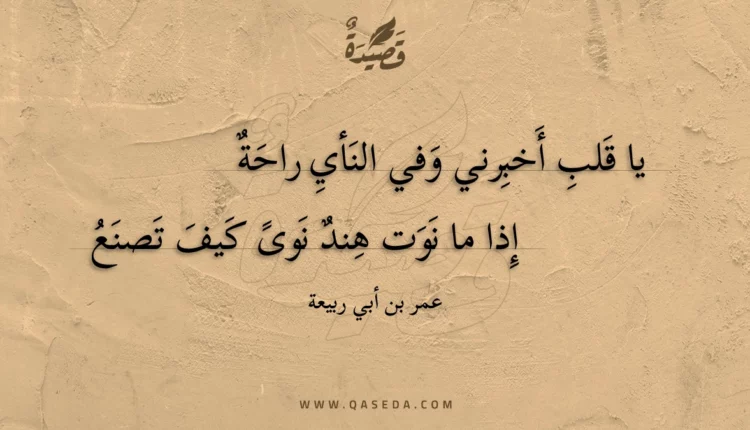 قَصِيْدَةٌ
يا قَلبِ أَخبِرني وَفي النَأيِ راحَةٌ
إِذا ما نَوَت هِندٌ نَوىً كَيفَ تَصنَعُ
عمر بن أبي ربيعة
WWW.QASEDA.COM